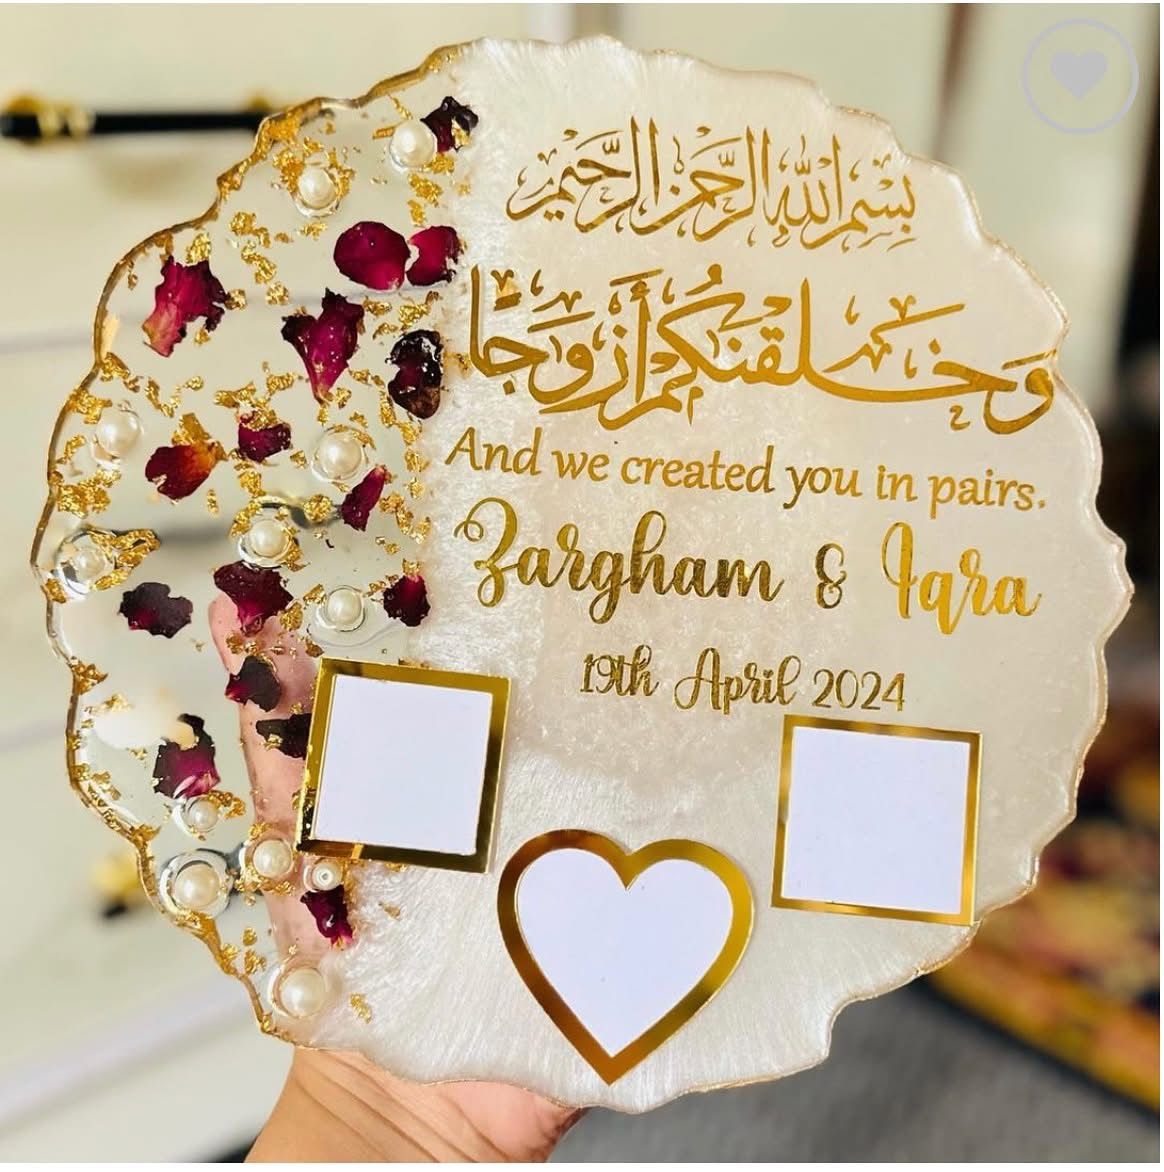 بِسْمِ اللهِ الرَّحْمٰنِ الرَّحِيْمِ
وَخَلَقْنَكُمْ أَزْوَجًا
And we created you in pairs.
Zargham & Iqra
19th April 2024